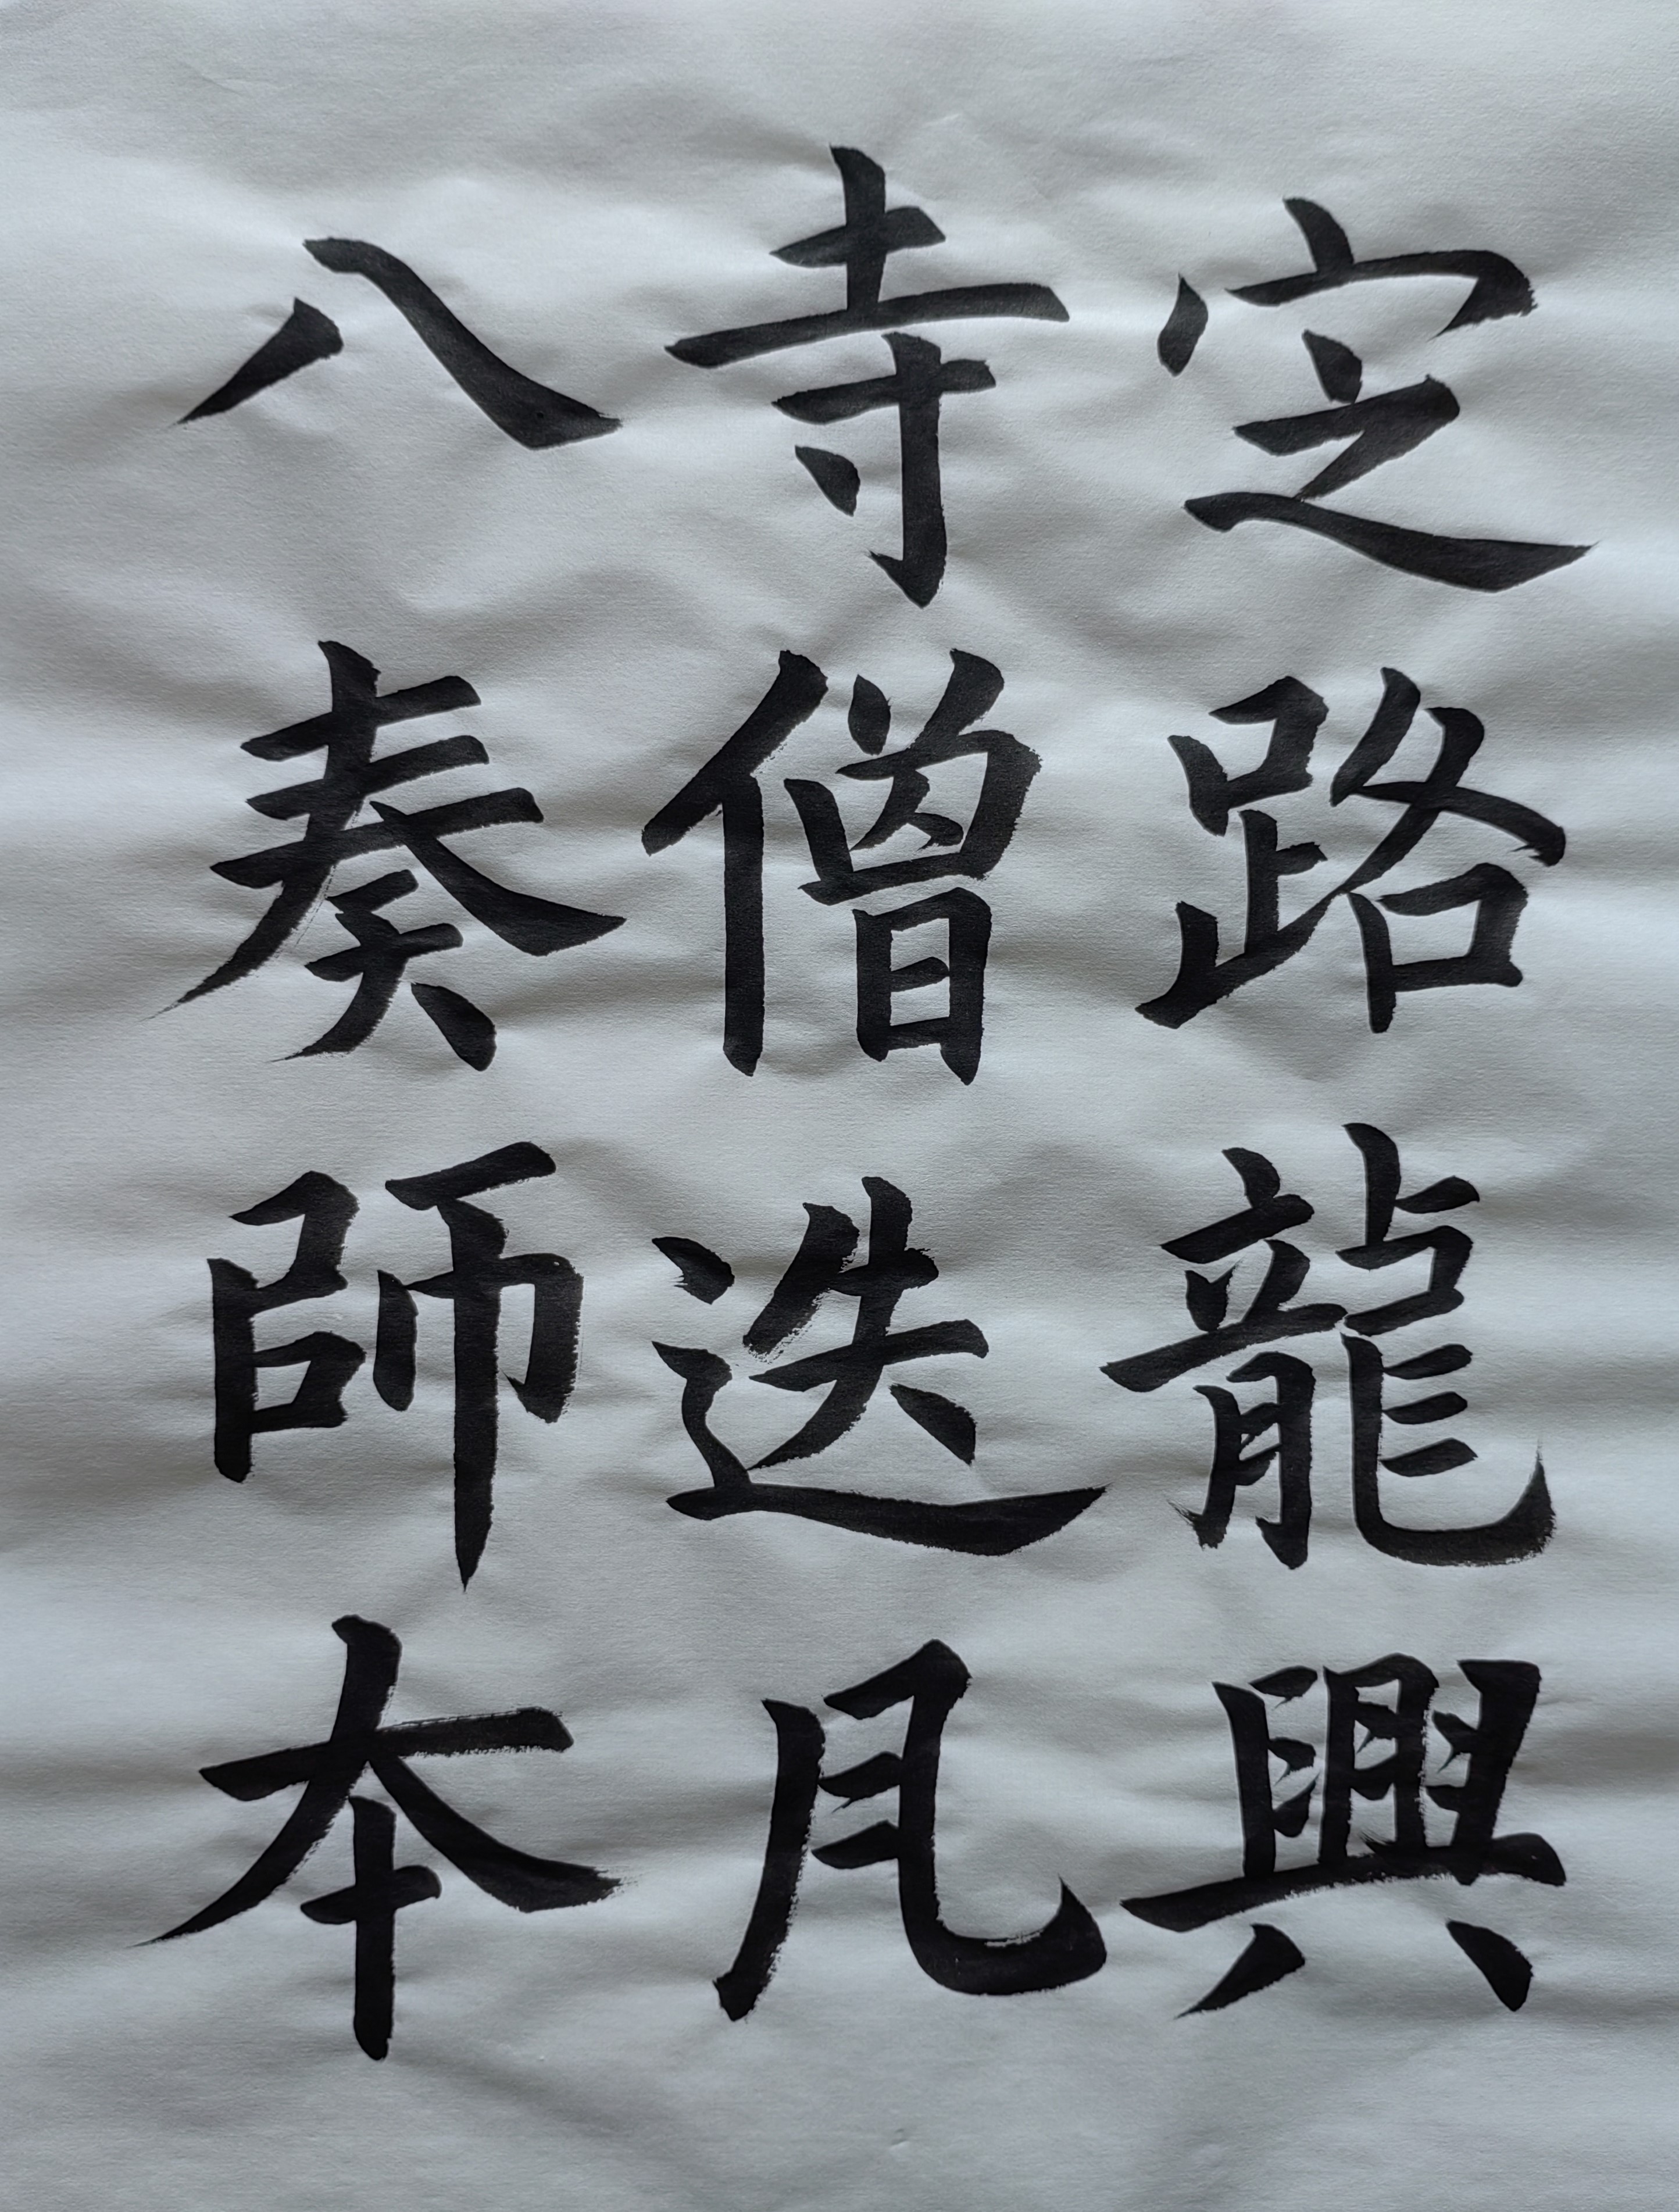 定路龍興
寺僧迭凡
八奏師本